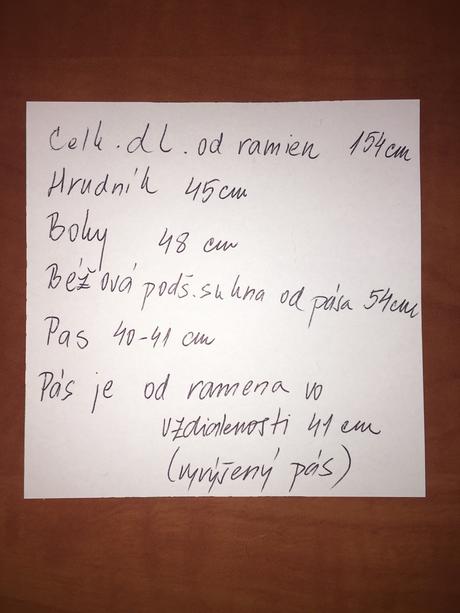 Celk. dl. od ramien 154cm
Hrudník 45cm
Boky 48 cm
Béžová podš. sukna od pása 54cm
Pas 40-41 cm
Pás je od ramena vo
vzdialenosti 41 cm
(vyvýšený pás)